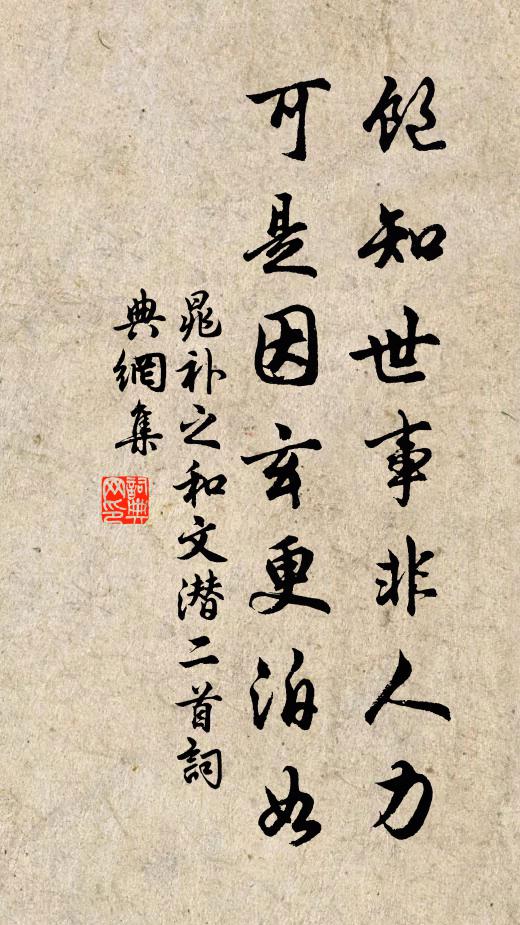 飽知世事非人力
可是因玄更泊如
晁补之和文潜二首詞
典網集
詞典
网印